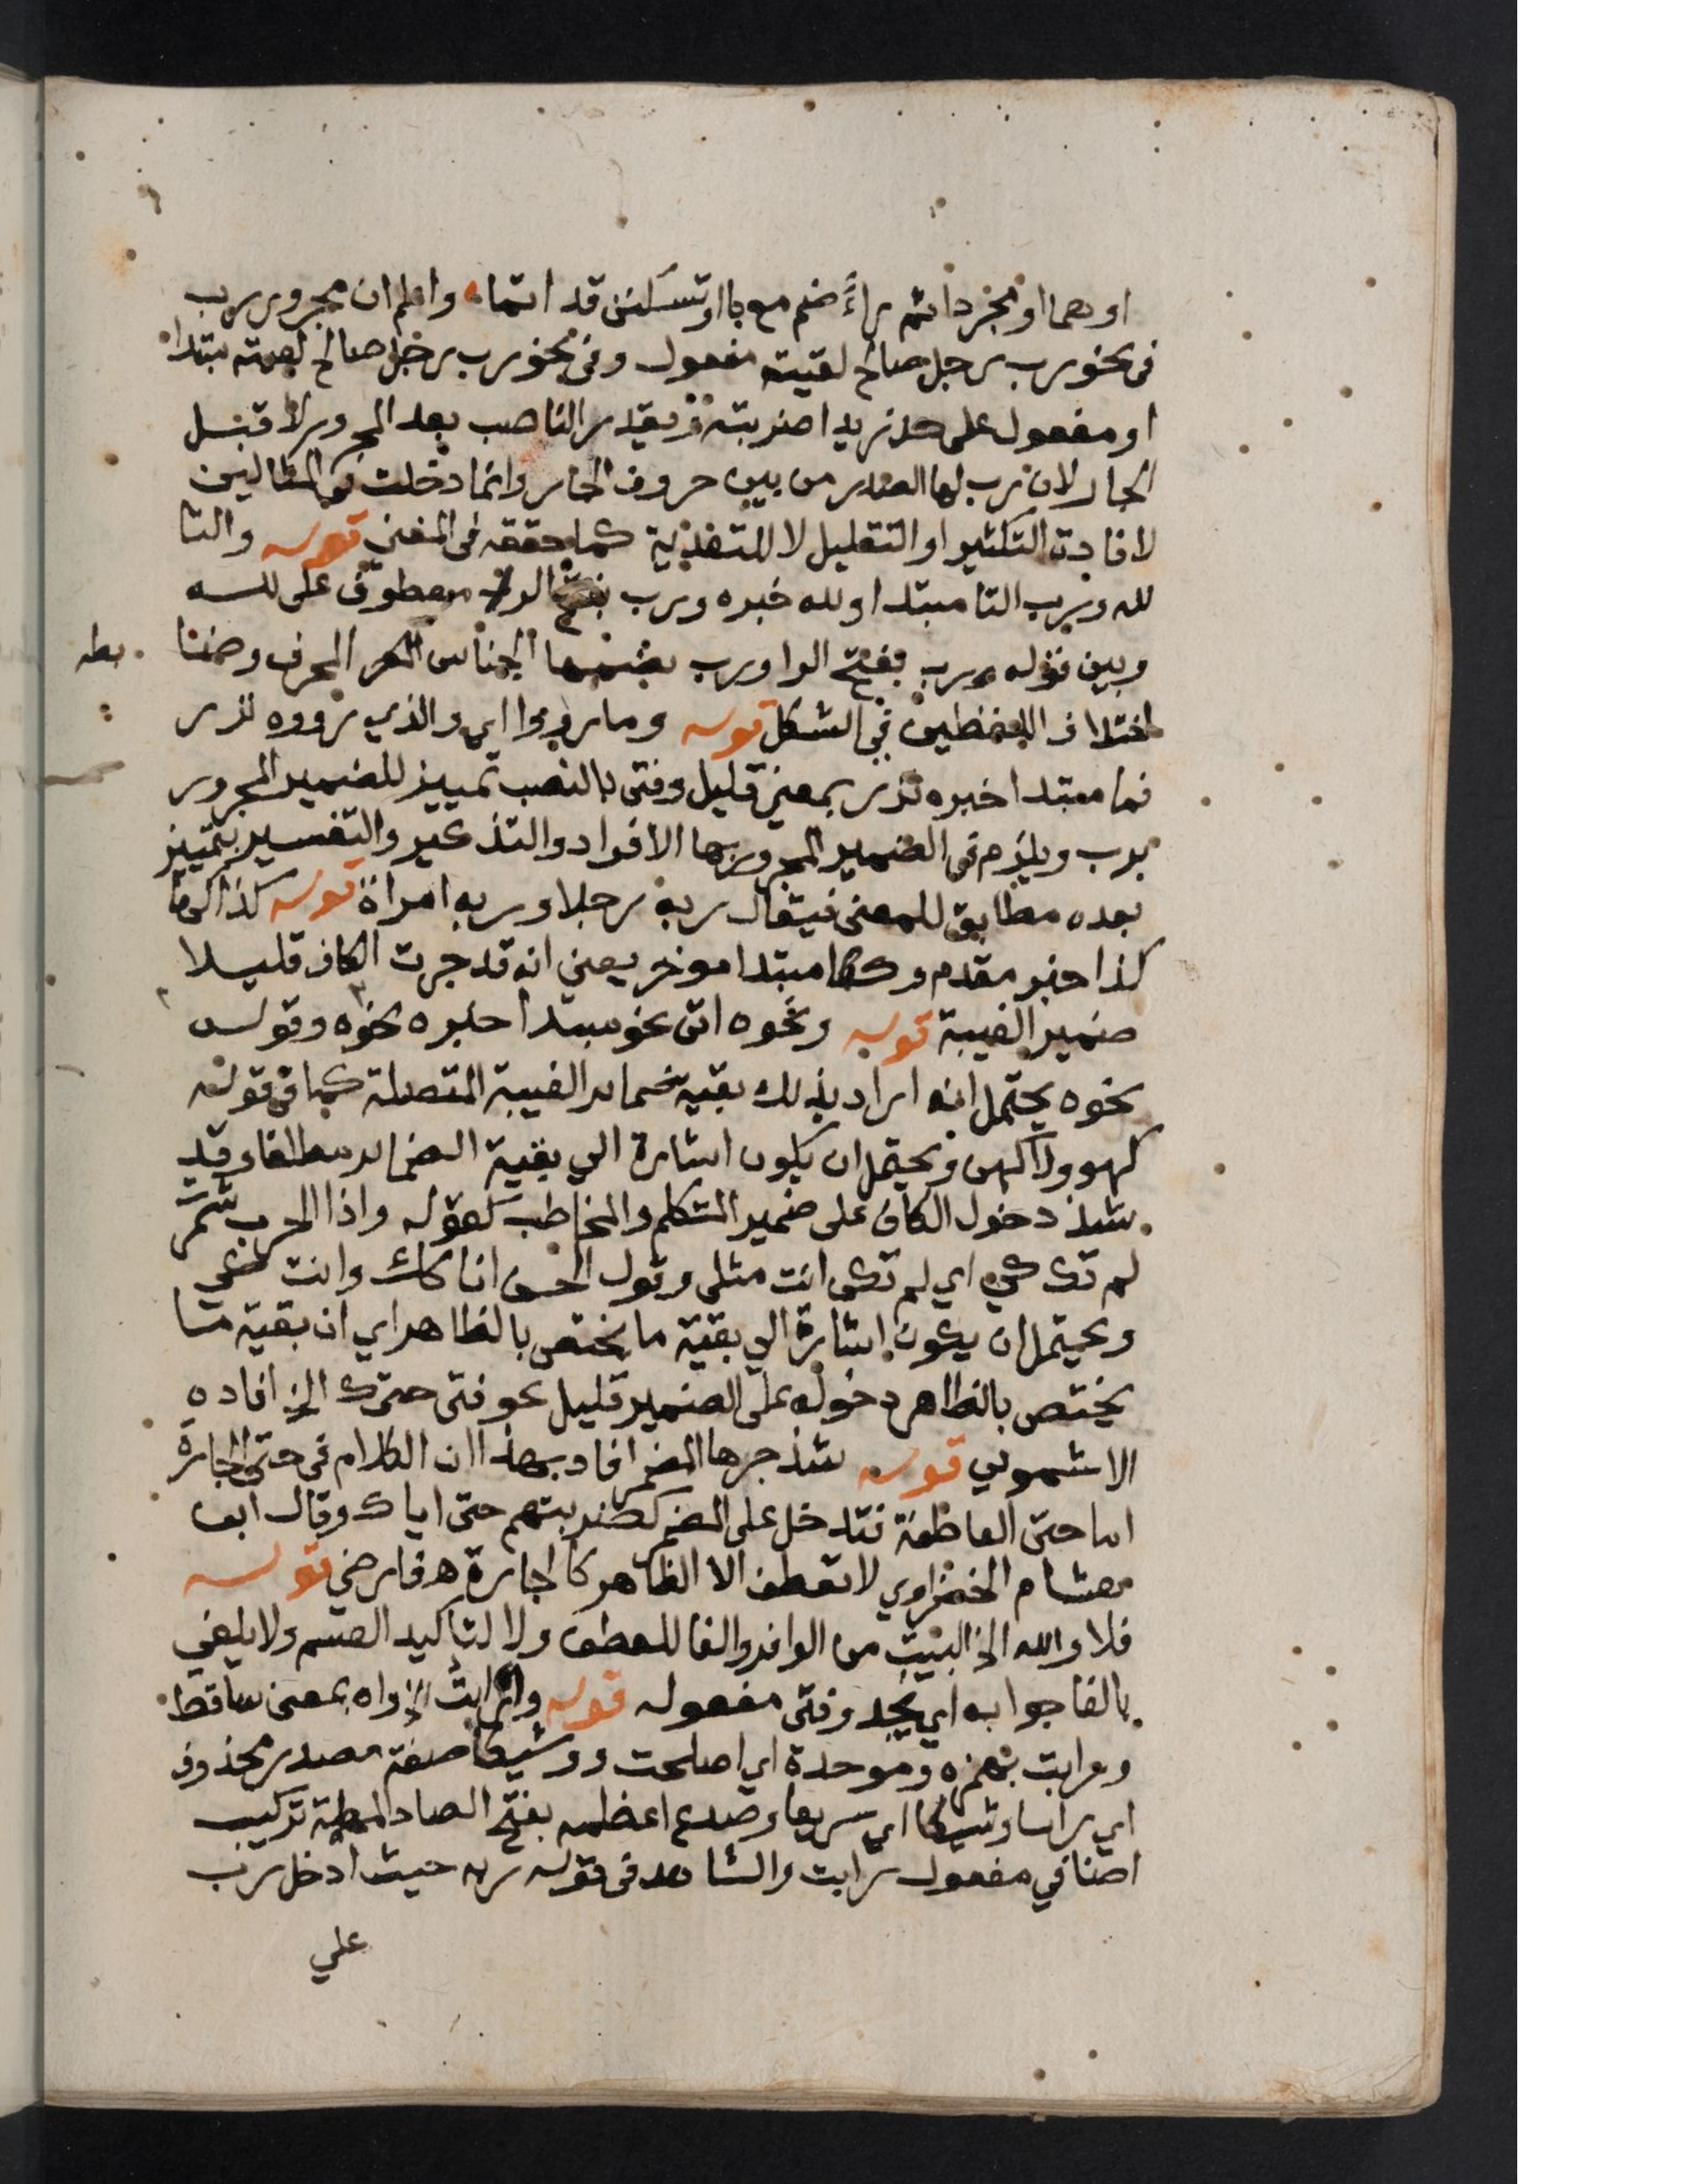 او هما او مجردا ثم راء ضم مع با او تسكن قد اتما واعلم ان مجرور رب
في نحو رب رجل صالح لقيت مفعول وفي نحو رب رجل صالح لقيته مبتدا
او مفعول على حد زيدا ضربته ويقدر الناصب بعد المجرور لا قبل
الجار لان رب لها الصدر من بين حروف الجر وانما دخلت في المثالين
لافادة التكثير او التقليل لا للتعدية كما حققه في المغني قوله والتا
لله ورب التا مبتدا ولله خبره ورب بفتح الرا معطوف على لله
وبين قوله ورب بفتح الرا ورب بضمها الجناس المحرف وضمنا
اختلاف اللفظين في الشكل قوله وما رووا اي والذي رووه نزر
فما مبتدا خبره نزر بمعنى قليل وفتى بالنصب تمييز للضمير المجرور
برب ويلزم في الضمير المجرور بها الافراد والتذكير والتفسير بتمييز
بعده مطابق للمعنى فيقال ربه رجلا وربه امراة قوله كذا كها
كذا خبر مقدم وكها مبتدا موخر يعني انه قد جرت الكاف قليلا
ضمير الغيبة قوله ونحوه اتى نحو مبتدا خبره نحوه وقوله
نحوه يحتمل انه اراد بذلك بقية ضماير الغيبة المتصلة كما في قوله
كهو ولا كهن ويحتمل ان يكون اشارة الي بقية الضماير مطلقا وقد
شذ دخول الكاف على ضمير المتكلم والمخاطب كقوله واذا الحرب شمرت
لم تك كي اي لم تكن انت مثلي وقول الحسن انا كك وانت كي
ويحتمل ان يكون اشارة الي بقية ما يختص بالظاهر اي ان بقية ما
يختص بالظاهر دخوله على الضمير قليل نحو فتى حتاك الخ افاده
الاشموني قوله شذ جرها الضمير افاد بهذا ان الكلام في حتى الجارة
اما حتى العاطفة فتدخل على الضمير كضربتهم حتى اياك وقال ابن
هشام الخضراوي لا تعطف الا الظاهر كالجارة ه فارضي قوله
فلا والله الخ البيت من الوافر والفا للعطف ولا لتاكيد القسم ولا يلفي
بالفا جوابه اي يجد وفتى مفعوله قوله وارابت الخ واه بمعنى ساقط
ورابت بهمزه وموحدة اي اصلحت ووشيكا صفة مصدر محذوف
اي رابا وشيكا اي سريعا وصدع اعظمه بفتح الصاد المهملة تركيب
اضافي مفعول رابت والشاهد في قوله ربه حيث ادخل رب
علي